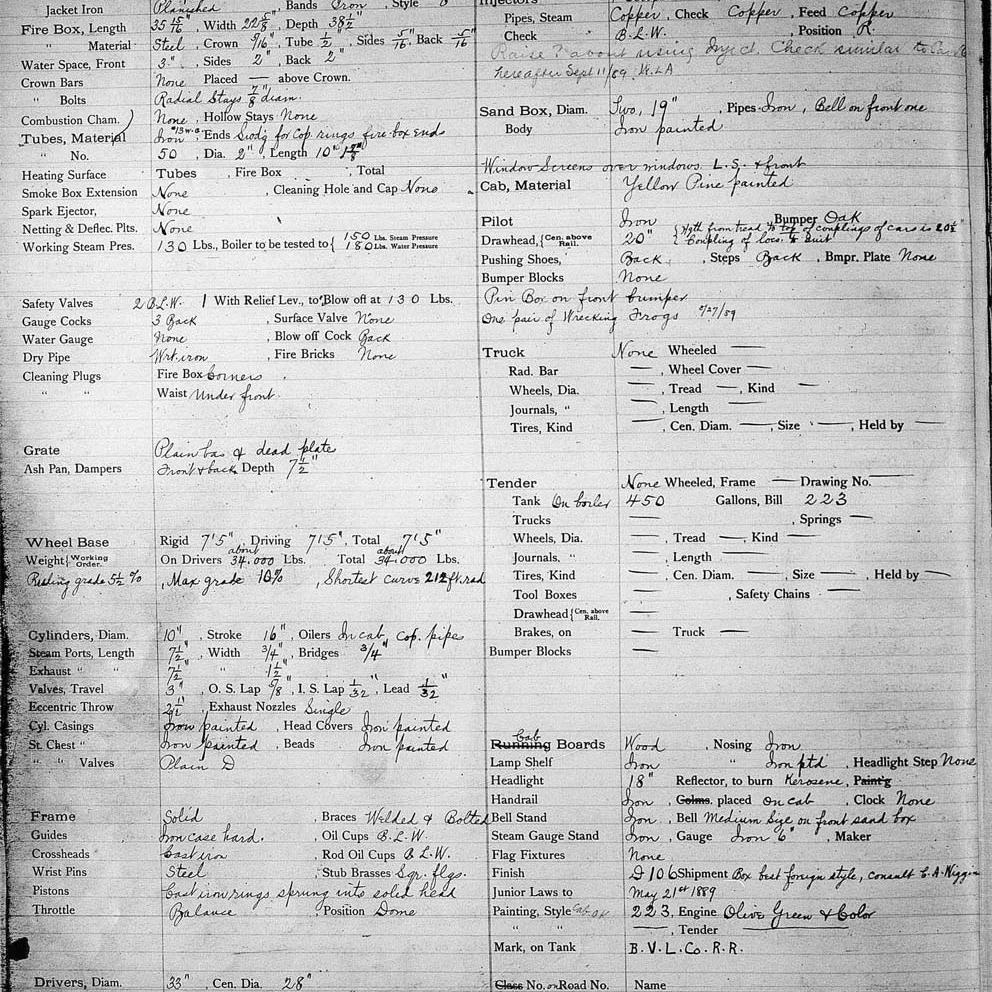 Jacket Iron Planished , Bands Iron , Style
Fire Box, Length 35 15/16" , Width 22 5/8" , Depth 38 1/2"
" Material Steel , Crown 9/16" , Tube 1/2" , Sides 5/16" , Back 5/16"
Water Space, Front 3" , Sides 2" , Back 2"
Crown Bars None Placed — above Crown.
" Bolts Radial Stays 7/8" diam.
Combustion Cham. None , Hollow Stays None
Tubes, Material Iron #13 w.g. , Ends Swdg for Cop. rings fire-box ends
" No. 50 , Dia. 2" , Length 10"
Heating Surface Tubes , Fire Box , Total
Smoke Box Extension None , Cleaning Hole and Cap None
Spark Ejector, None
Netting & Deflec. Plts. None
Working Steam Pres. 130 Lbs., Boiler to be tested to { 150 Lbs. Steam Pressure
180 Lbs. Water Pressure
Safety Valves 2 B.L.W. 1 With Relief Lev., to Blow off at 130 Lbs.
Gauge Cocks 3 Back , Surface Valve None
Water Gauge None , Blow off Cock Back
Dry Pipe Wrt. iron , Fire Bricks None
Cleaning Plugs Fire Box Corners .
" " Waist Under front.
Grate Plain bas & dead plate
Ash Pan, Dampers Front & back Depth 7 1/2"
Wheel Base Rigid 7'5" , Driving 7'5" , Total 7'5"
Weight { Working Order. On Drivers about 34.000 Lbs. Total about 34.000 Lbs.
grade 5½ % , Max grade 10% , Shortest curve 212 ft. rad
Cylinders, Diam. 10" , Stroke 16" , Oilers In cab, cop. pipes
Steam Ports, Length 7 1/2" , Width 3/4" , Bridges 3/4"
Exhaust " " 7 1/2" " 1 1/2"
Valves, Travel 3" , O. S. Lap 5/8" , I. S. Lap 1/32" , Lead 1/32"
Eccentric Throw , Exhaust Nozzles Single
Cyl. Casings Iron painted , Head Covers Iron painted
St. Chest " Iron painted , Beads Iron painted
" " Valves Plain D
Frame Solid , Braces Welded & Bolted
Guides Iron case hard. , Oil Cups B.L.W.
Crossheads Cast iron , Rod Oil Cups B.L.W.
Wrist Pins Steel , Stub Brasses Sqr. flgs.
Pistons Cast iron rings sprung into solid head
Throttle Balance , Position Dome
Drivers, Diam. 33" , Cen. Dia. 28"
Injectors
Pipes, Steam Copper , Check Copper , Feed Copper
Check B.L.W. , Position R.
Raise 7" about using Inject. Check similar to
hereafter Sept 11/89
Sand Box, Diam. Two, 19" , Pipes Iron , Bell on front one
Body Iron painted
Window Screens over windows. L.S. & front
Cab, Material Yellow Pine painted
Pilot Iron Bumper Oak
Drawhead, { Cen. above Rail. 20" { Hgth from tread to top of couplings of cars is 20½"
Coupling of loco. to suit
Pushing Shoes, Back , Steps Back , Bmpr. Plate None
Bumper Blocks None
Pin Box on front bumper
One pair of Wrecking Frogs 7/27/89
Truck None Wheeled —
Rad. Bar — , Wheel Cover —
Wheels, Dia. — , Tread — , Kind —
Journals, " — , Length —
Tires, Kind — , Cen. Diam. — , Size — , Held by —
Tender None Wheeled, Frame — Drawing No. —
Tank On boiler 450 Gallons, Bill 223
Trucks — , Springs —
Wheels, Dia. — , Tread — , Kind —
Journals, " — , Length —
Tires, Kind — , Cen. Diam. — , Size — , Held by —
Tool Boxes — , Safety Chains —
Drawhead { Cen. above Rail. —
Brakes, on — Truck —
Bumper Blocks —
Cab
Running Boards Wood , Nosing Iron
Lamp Shelf Iron " Iron ptd , Headlight Step None
Headlight 18" Reflector, to burn Kerosene, Paint'g
Handrail Iron , Colms. placed on cab , Clock None
Bell Stand Iron , Bell Medium Size on front sand box
Steam Gauge Stand Iron , Gauge Iron 6" , Maker
Flag Fixtures None
Finish D 106 Shipment Box best foreign style, consult C. A. Wiggin
Junior Laws to May 21st 1889
Painting, Style 223, Engine Olive Green & Color
" " — , Tender —
Mark, on Tank B.V.L.Co.R.R.
Class No. on Road No. Name